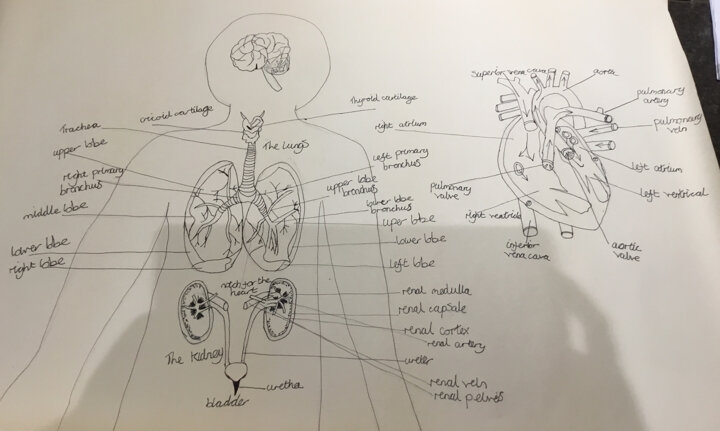 cricoid cartilage
Thyroid cartilage
Trachea
The Lungs
upper lobe
right primary
bronchus
middle lobe
lower lobe
right lobe
left primary
bronchus
upper lobe
bronchus
lower lobe
bronchus
uper lobe
lower lobe
left lobe
notch for the
heart
renal medulla
renal capsale
renal cortex
renal artery
ureter
renal vein
renal pelves
The Kidney
uretha
bladder
Superior vena cava
aorta
pulmonary
artery
pulmonary
vein
right atrium
left atrium
left ventrical
pulmonary
valve
right ventricle
inferior
vena cava
aortic
valve